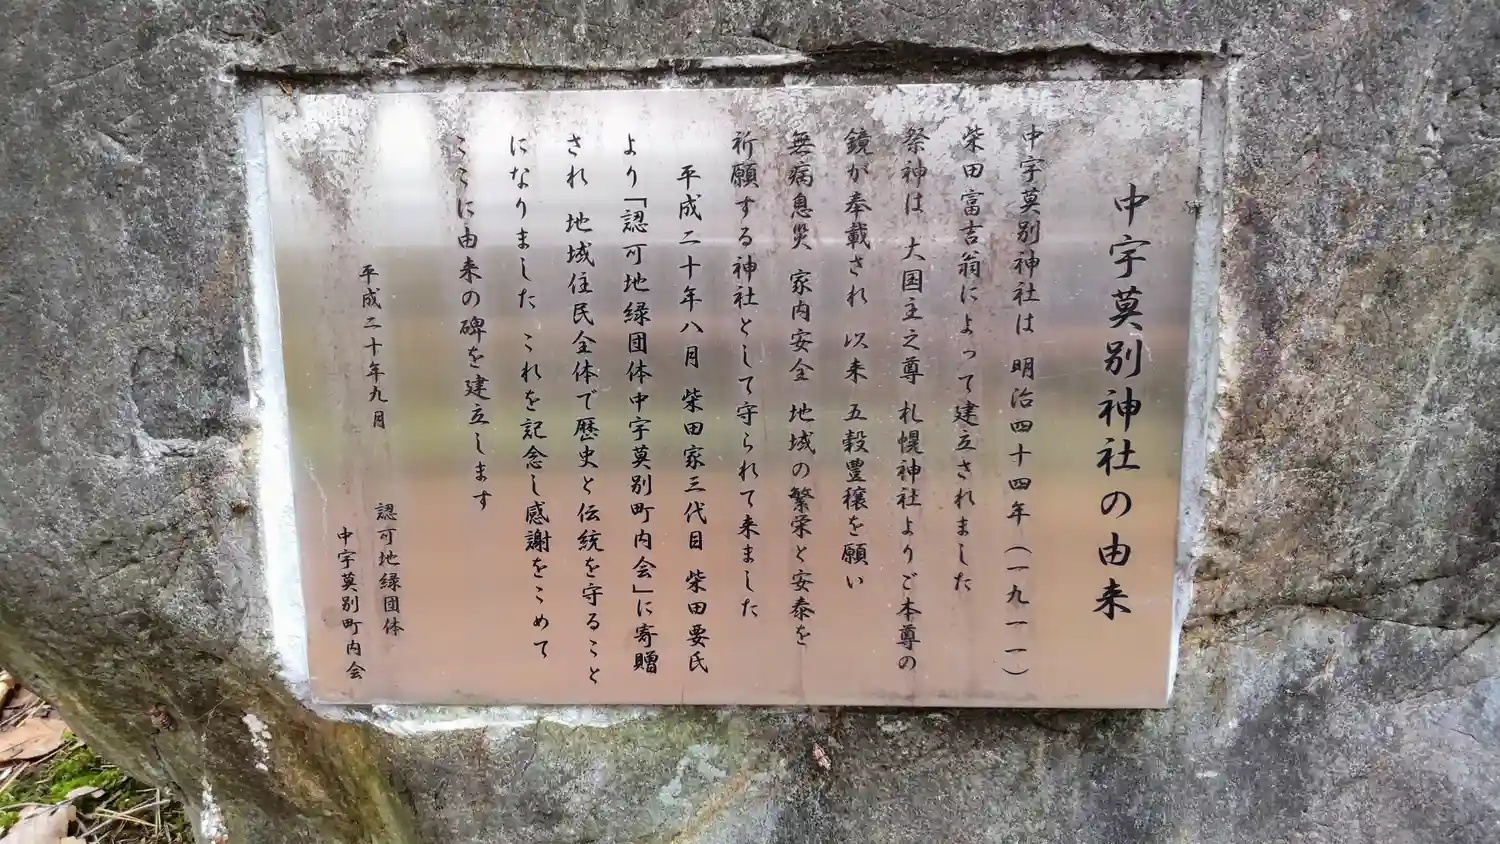 中宇莫別神社の由来
中宇莫別神社は 明治四十四年(一九一一)
柴田富吉翁によって建立されました
祭神は 大国主之尊 札幌神社よりご本尊の
鏡が奉載され 以来 五穀豊穣を願い
無病息災 家内安全 地域の繁栄と安泰を
祈願する神社として守られて来ました
平成二十年八月 柴田家三代目 柴田要氏
より「認可地緑団体中宇莫別町内会」に寄贈
され 地域住民全体で歴史と伝統を守ること
になりました これを記念し感謝をこめて
ここに由来の碑を建立します
平成二十年九月
認可地緑団体
中宇莫別町内会